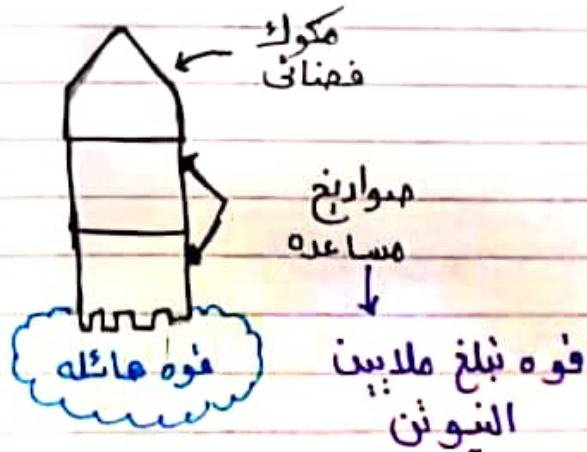 مكوك
فضائى
صواريخ
مساعده
قوه هائله
قوه تبلغ ملايين
النيوتن